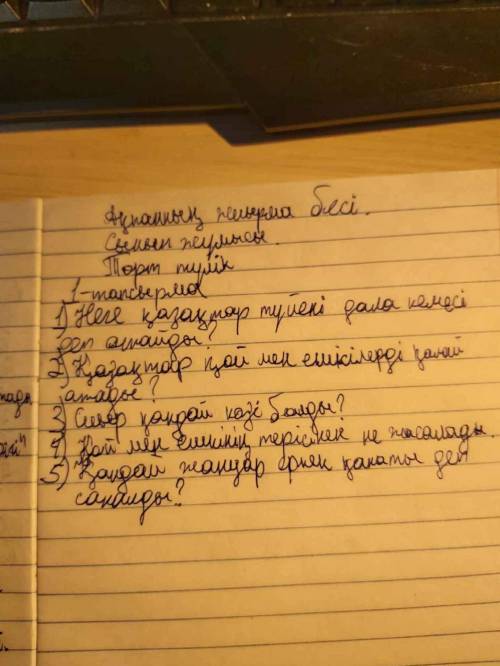 Ақпанның жиырма бесі.
Сынып жұмысы.
Төрт түлік
1-тапсырма
1) Неге қазақтар түйені дала кемесі
деп атайды?
2) Қазақтар қой мен ешкілерді қалай
атады?
3) Сиыр қандай көзі болды?
4) Қой мен ешкінің терісінен не жасалады.
5) Қандай жануар ернек қанаты деп
саналды?